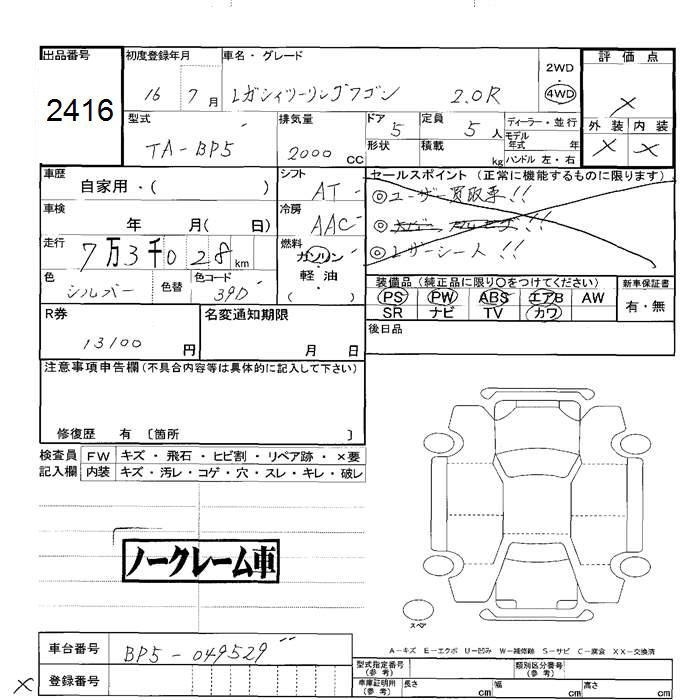 出品番号 初度登録年月 車名・グレード 2WD 評価点
2416 16 7月 レガシィツーリングワゴン 2.0R 4WD ×
型式 排気量 ドア 定員 ディーラー・並行 外装 内装
TA-BP5 2000CC 5 5人 モデル年式 年 × ×
形状 積載 kg ハンドル 左・右
車歴 シフト セールスポイント(正常に機能するものに限ります)
自家用・( ) AT ◎ユーザー買取車!!
車検 年 月( 日) 冷房 AAC
走行 7万3千028km 燃料 ガソリン ◎レザーシート!!
軽油
( )
色 シルバー 色替 色コード 39D
装備品(純正品に限り○をつけてください) 新車保証書
PS PW ABS エアB AW 有・無
SR ナビ TV カワ
R券 名変通知期限 後日品
13100円 月 日
注意事項申告欄(不具合内容等は具体的に記入して下さい)
修復歴 有 〔箇所 〕
検査員 FW キズ・飛石・ヒビ割・リペア跡・×要
記入欄 内装 キズ・汚レ・コゲ・穴・スレ・キレ・破レ
ノークレーム車
スペア
A-キズ E-エクボ U-凹み W-補修跡 S-サビ C-腐食 XX-交換済
車台番号 BP5-049529
型式指定番号(参考) 類別区分番号(参考)
× 登録番号
車庫証明用(参考) 長さ cm 幅 cm 高さ cm